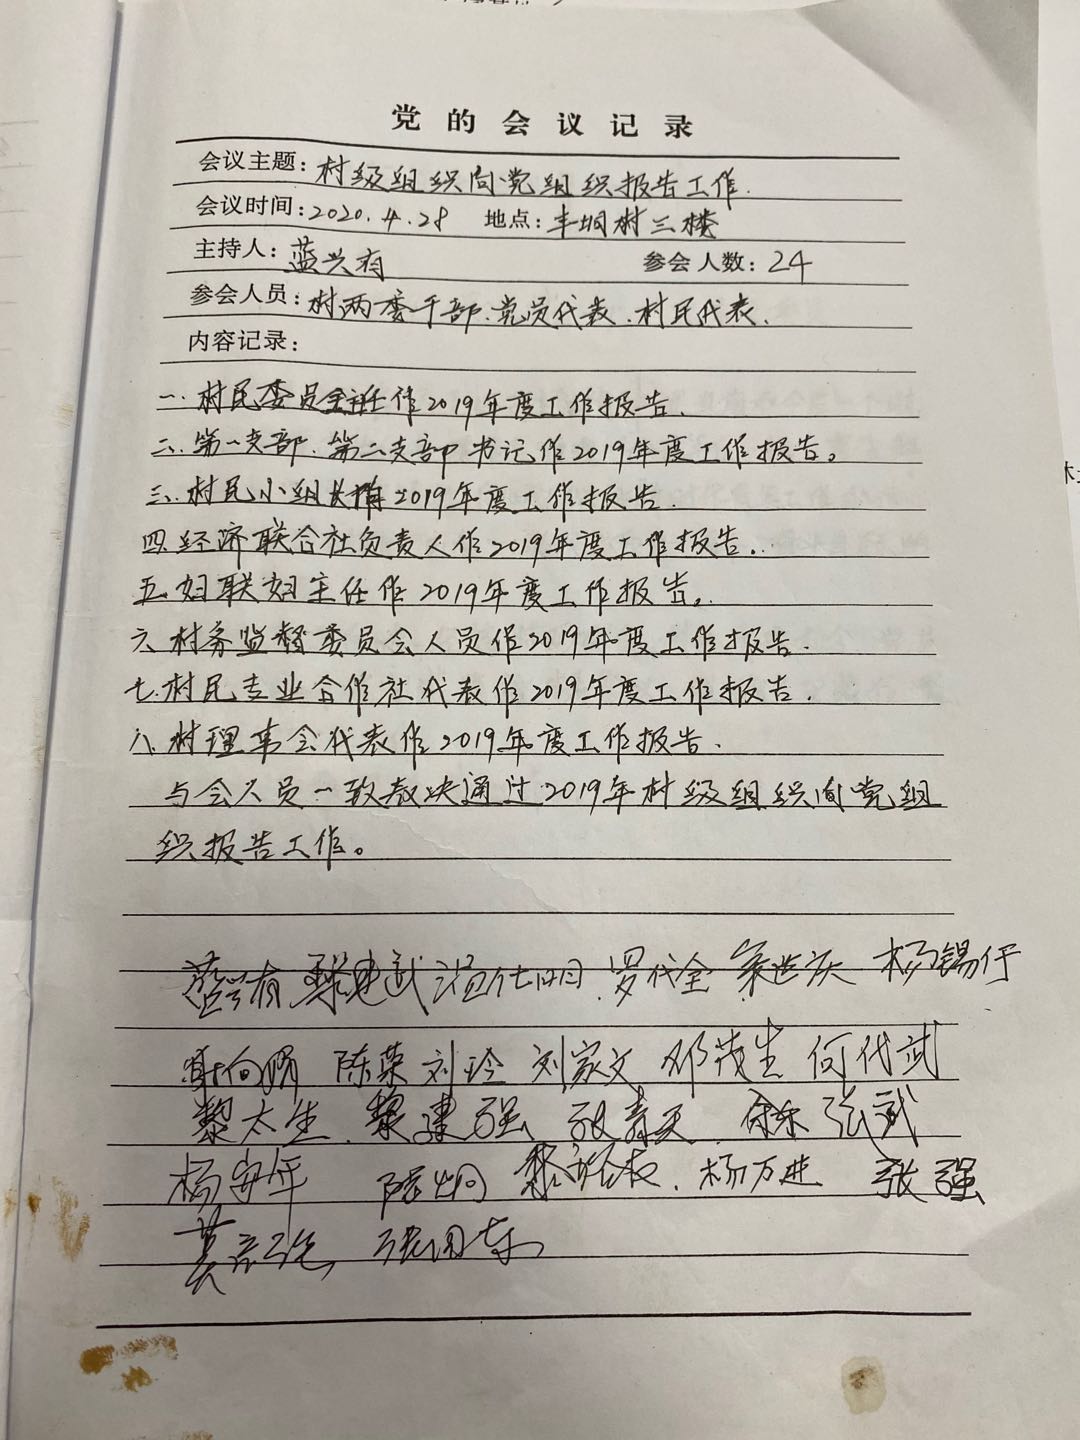 党的会议记录
会议主题：村级组织向党组织报告工作.
会议时间：2020.4.28 地点：丰垌村三楼
主持人：蓝兴有 参会人数：24
参会人员：村两委干部.党员代表.村民代表.
内容记录：
一.村民委员会主任作2019年度工作报告.
二.第一支部.第二支部书记作2019年度工作报告。
三.村民小组长作2019年度工作报告.
四.经济联合社负责人作2019年度工作报告.
五.妇联妇主任作2019年度工作报告。
六.村务监督委员会人员作2019年度工作报告.
七.村民专业合作社代表作2019年度工作报告.
八.村理事会代表作2019年度工作报告.
与会人员一致表决通过2019年村级组织向党组
织报告工作。
蓝兴有 罗代全 杨锡仔
陈荣 刘玲 刘家文 邓茂生 何代武
黎太生.黎建强 张寿天 张武
杨安坪 杨万进 张强